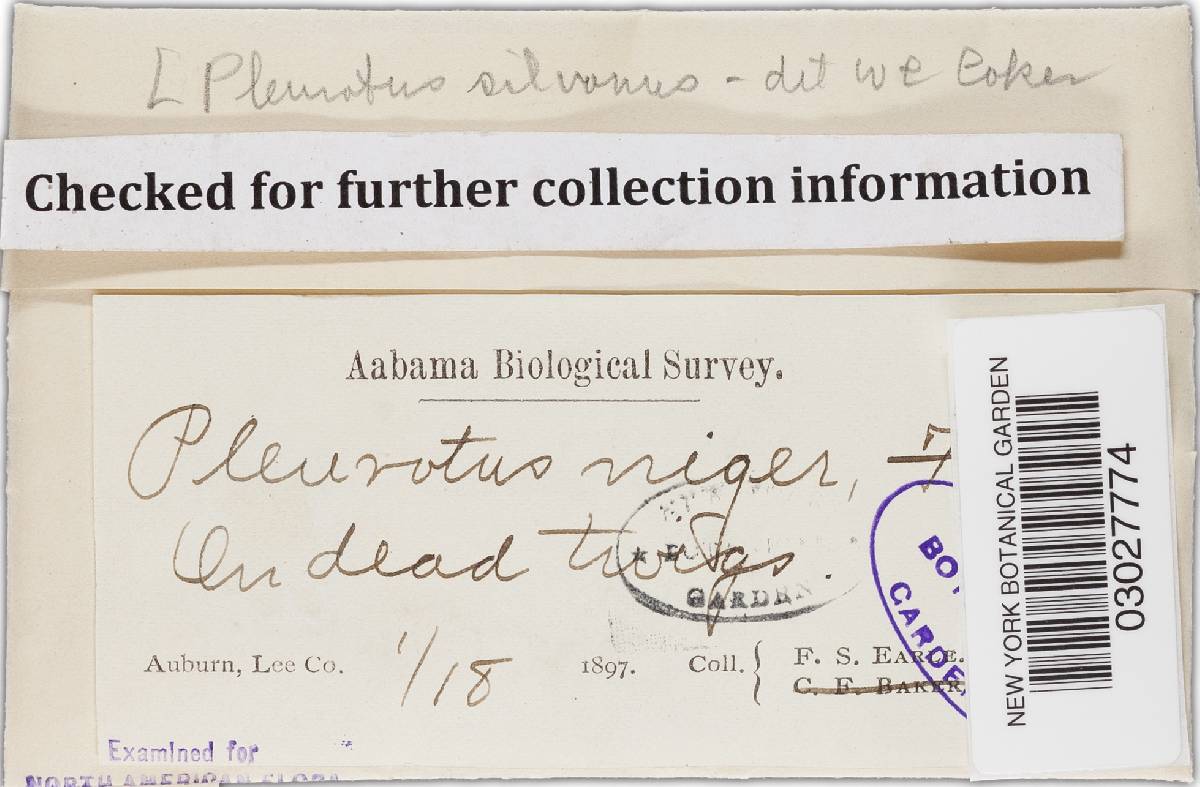 [ Pleurotus silvanus - det W C Coker
Checked for further collection information
Aabama Biological Survey.
Pleurotus niger,
On dead twigs.
GARDEN
BO
GARDE
Auburn, Lee Co. 1/18 1897. Coll. { F. S. EARLE.
C. F. BAKER,
NEW YORK BOTANICAL GARDEN
03027774
Examined for
NORTH AMERICAN FLORA